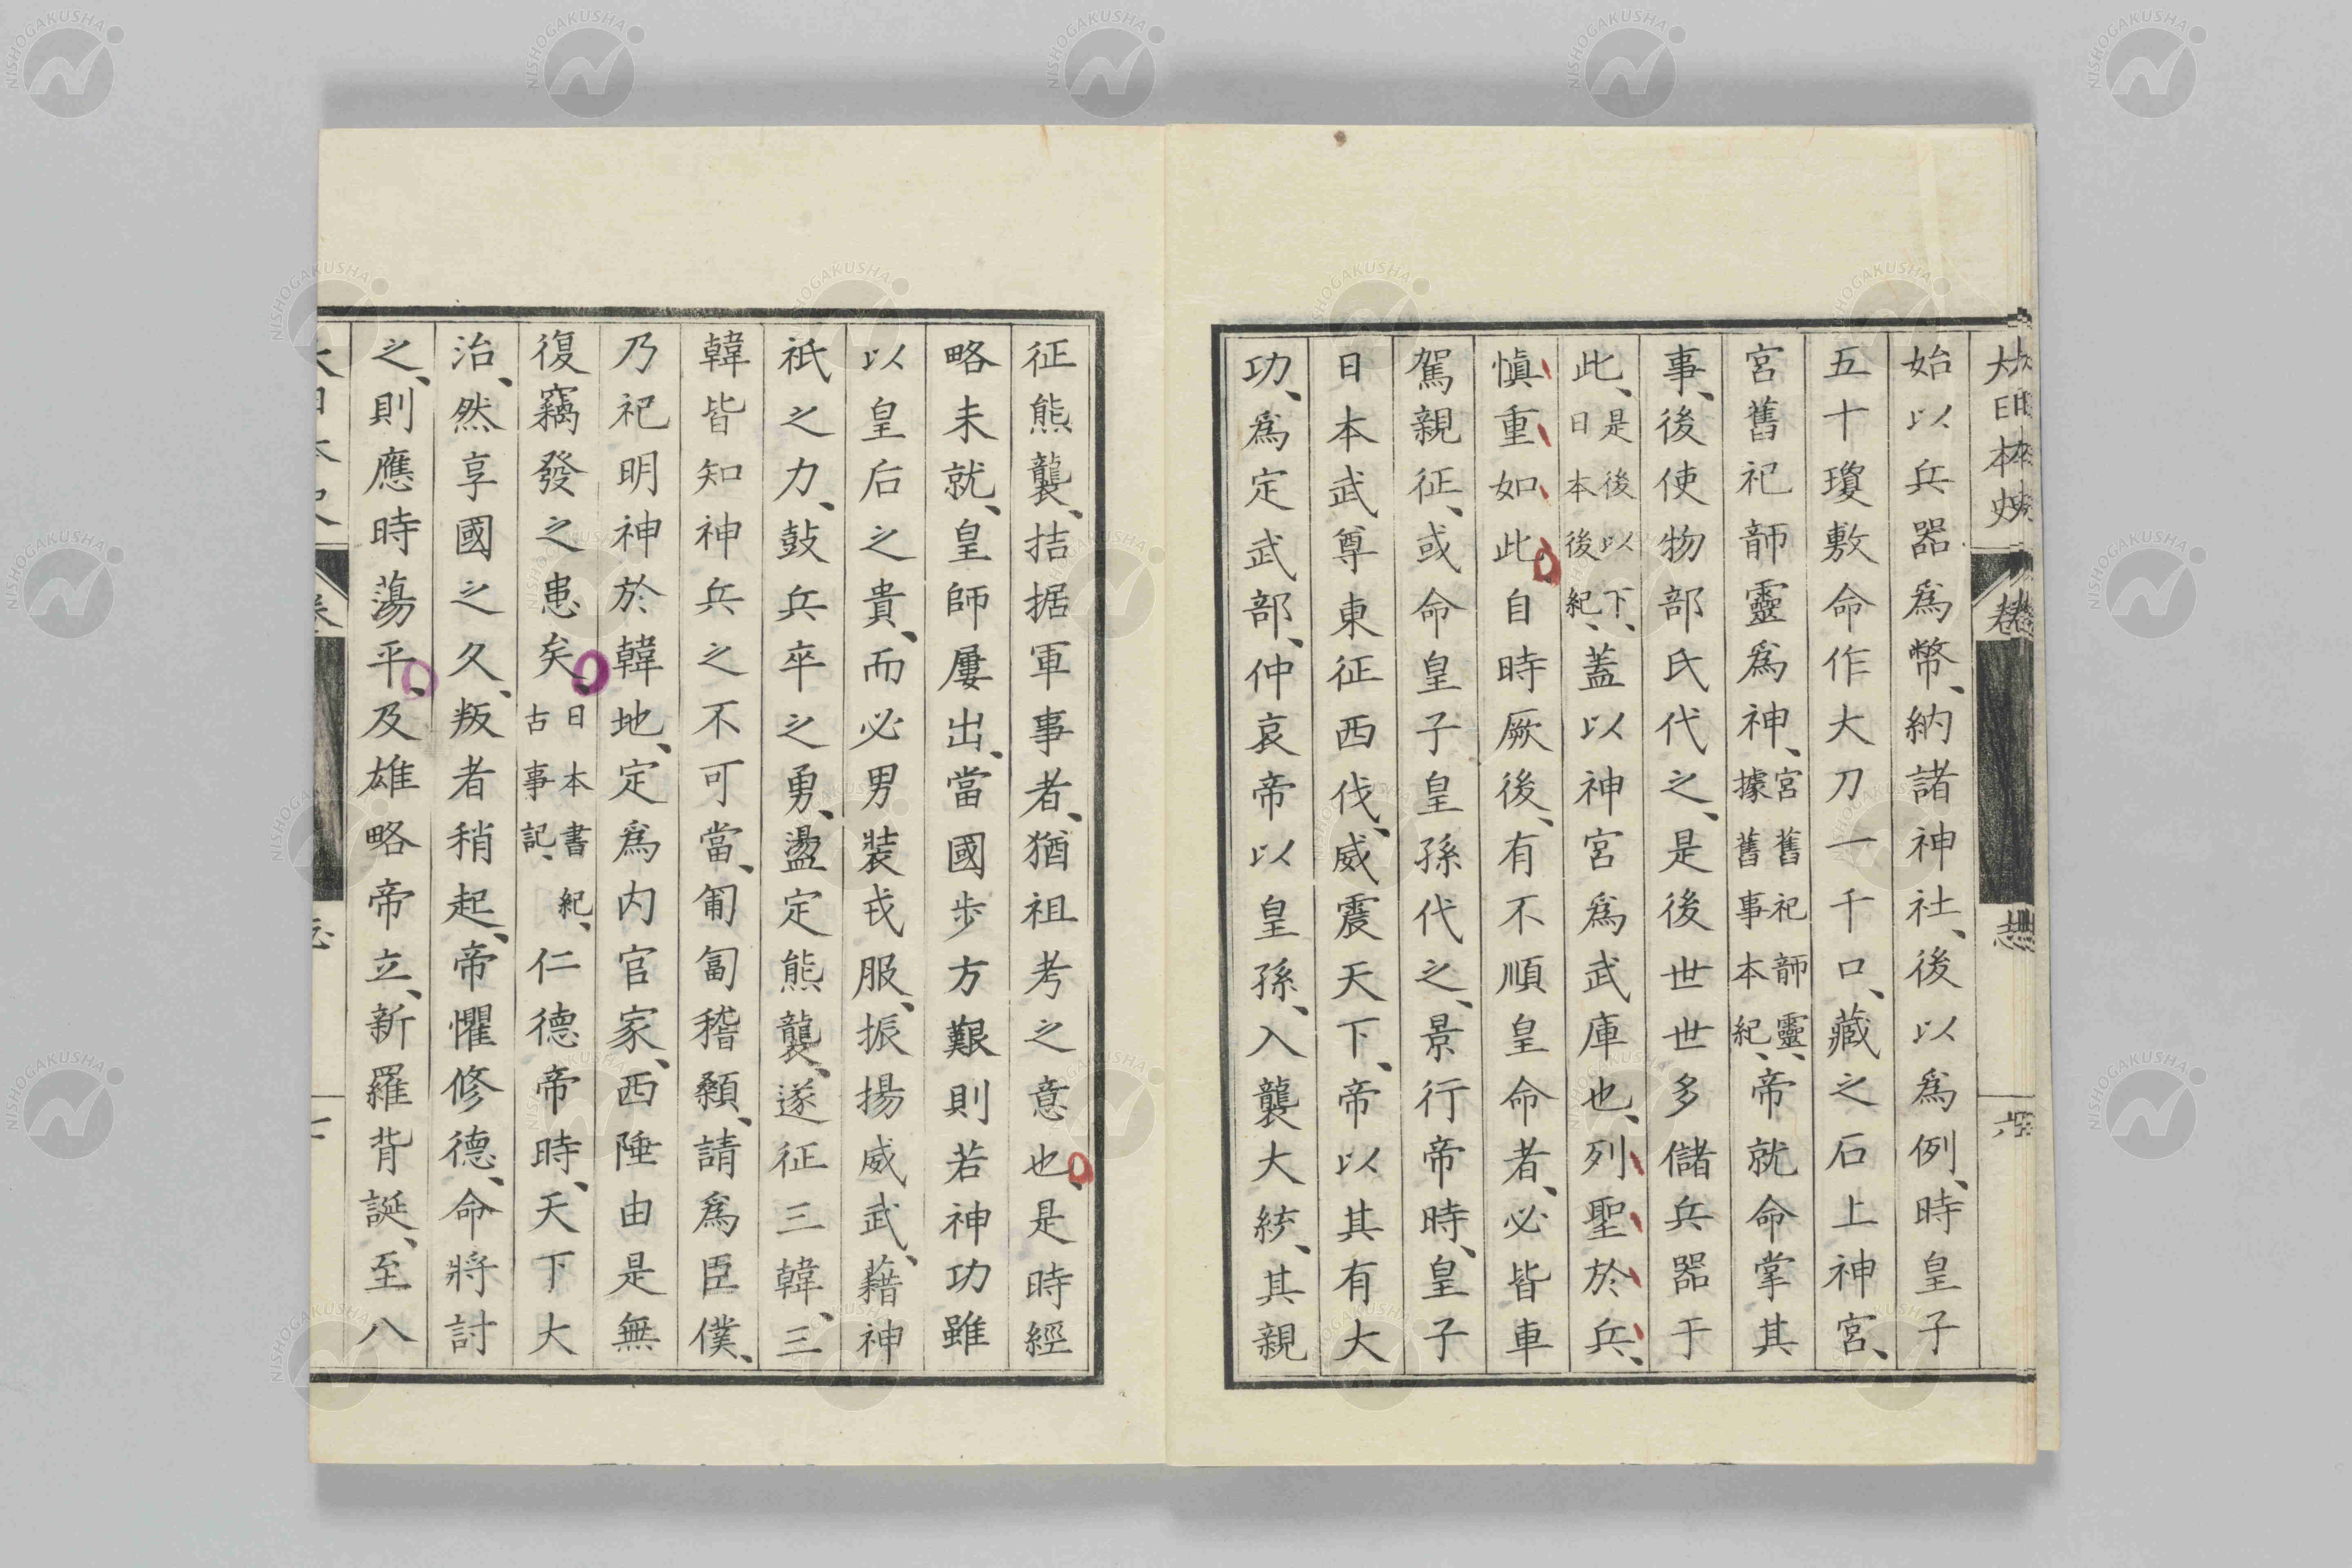 大日本史 卷 志
始以兵器爲幣、納諸神社、後以爲例、時皇子
五十瓊敷命作大刀一千口、藏之石上神宮、
宮舊祀韴靈爲神、宮舊祀韴靈、據舊事本紀、帝就命掌其
事、後使物部氏代之、是後世世多儲兵器于
此、是後以下、日本後紀、蓋以神宮爲武庫也、列聖於兵、
愼重如此、自時厥後、有不順皇命者、必皆車
駕親征、或命皇子皇孫代之、景行帝時、皇子
日本武尊東征西伐、威震天下、帝以其有大
功、爲定武部、仲哀帝以皇孫、入襲大統、其親
征熊襲、拮据軍事者、猶祖考之意也、是時經
略未就、皇師屢出、當國步方艱則若神功雖
以皇后之貴、而必男裝戎服、振揚威武、藉神
祇之力、鼓兵卒之勇、盪定熊襲、遂征三韓、三
韓皆知神兵之不可當、匍匐稽顙、請爲臣僕、
乃祀明神於韓地、定爲内官家、西陲由是無
復竊發之患矣、日本書紀、古事記、仁德帝時、天下大
治、然享國之久、叛者稍起、帝懼修德、命將討
之、則應時蕩平、及雄略帝立、新羅背誕、至八